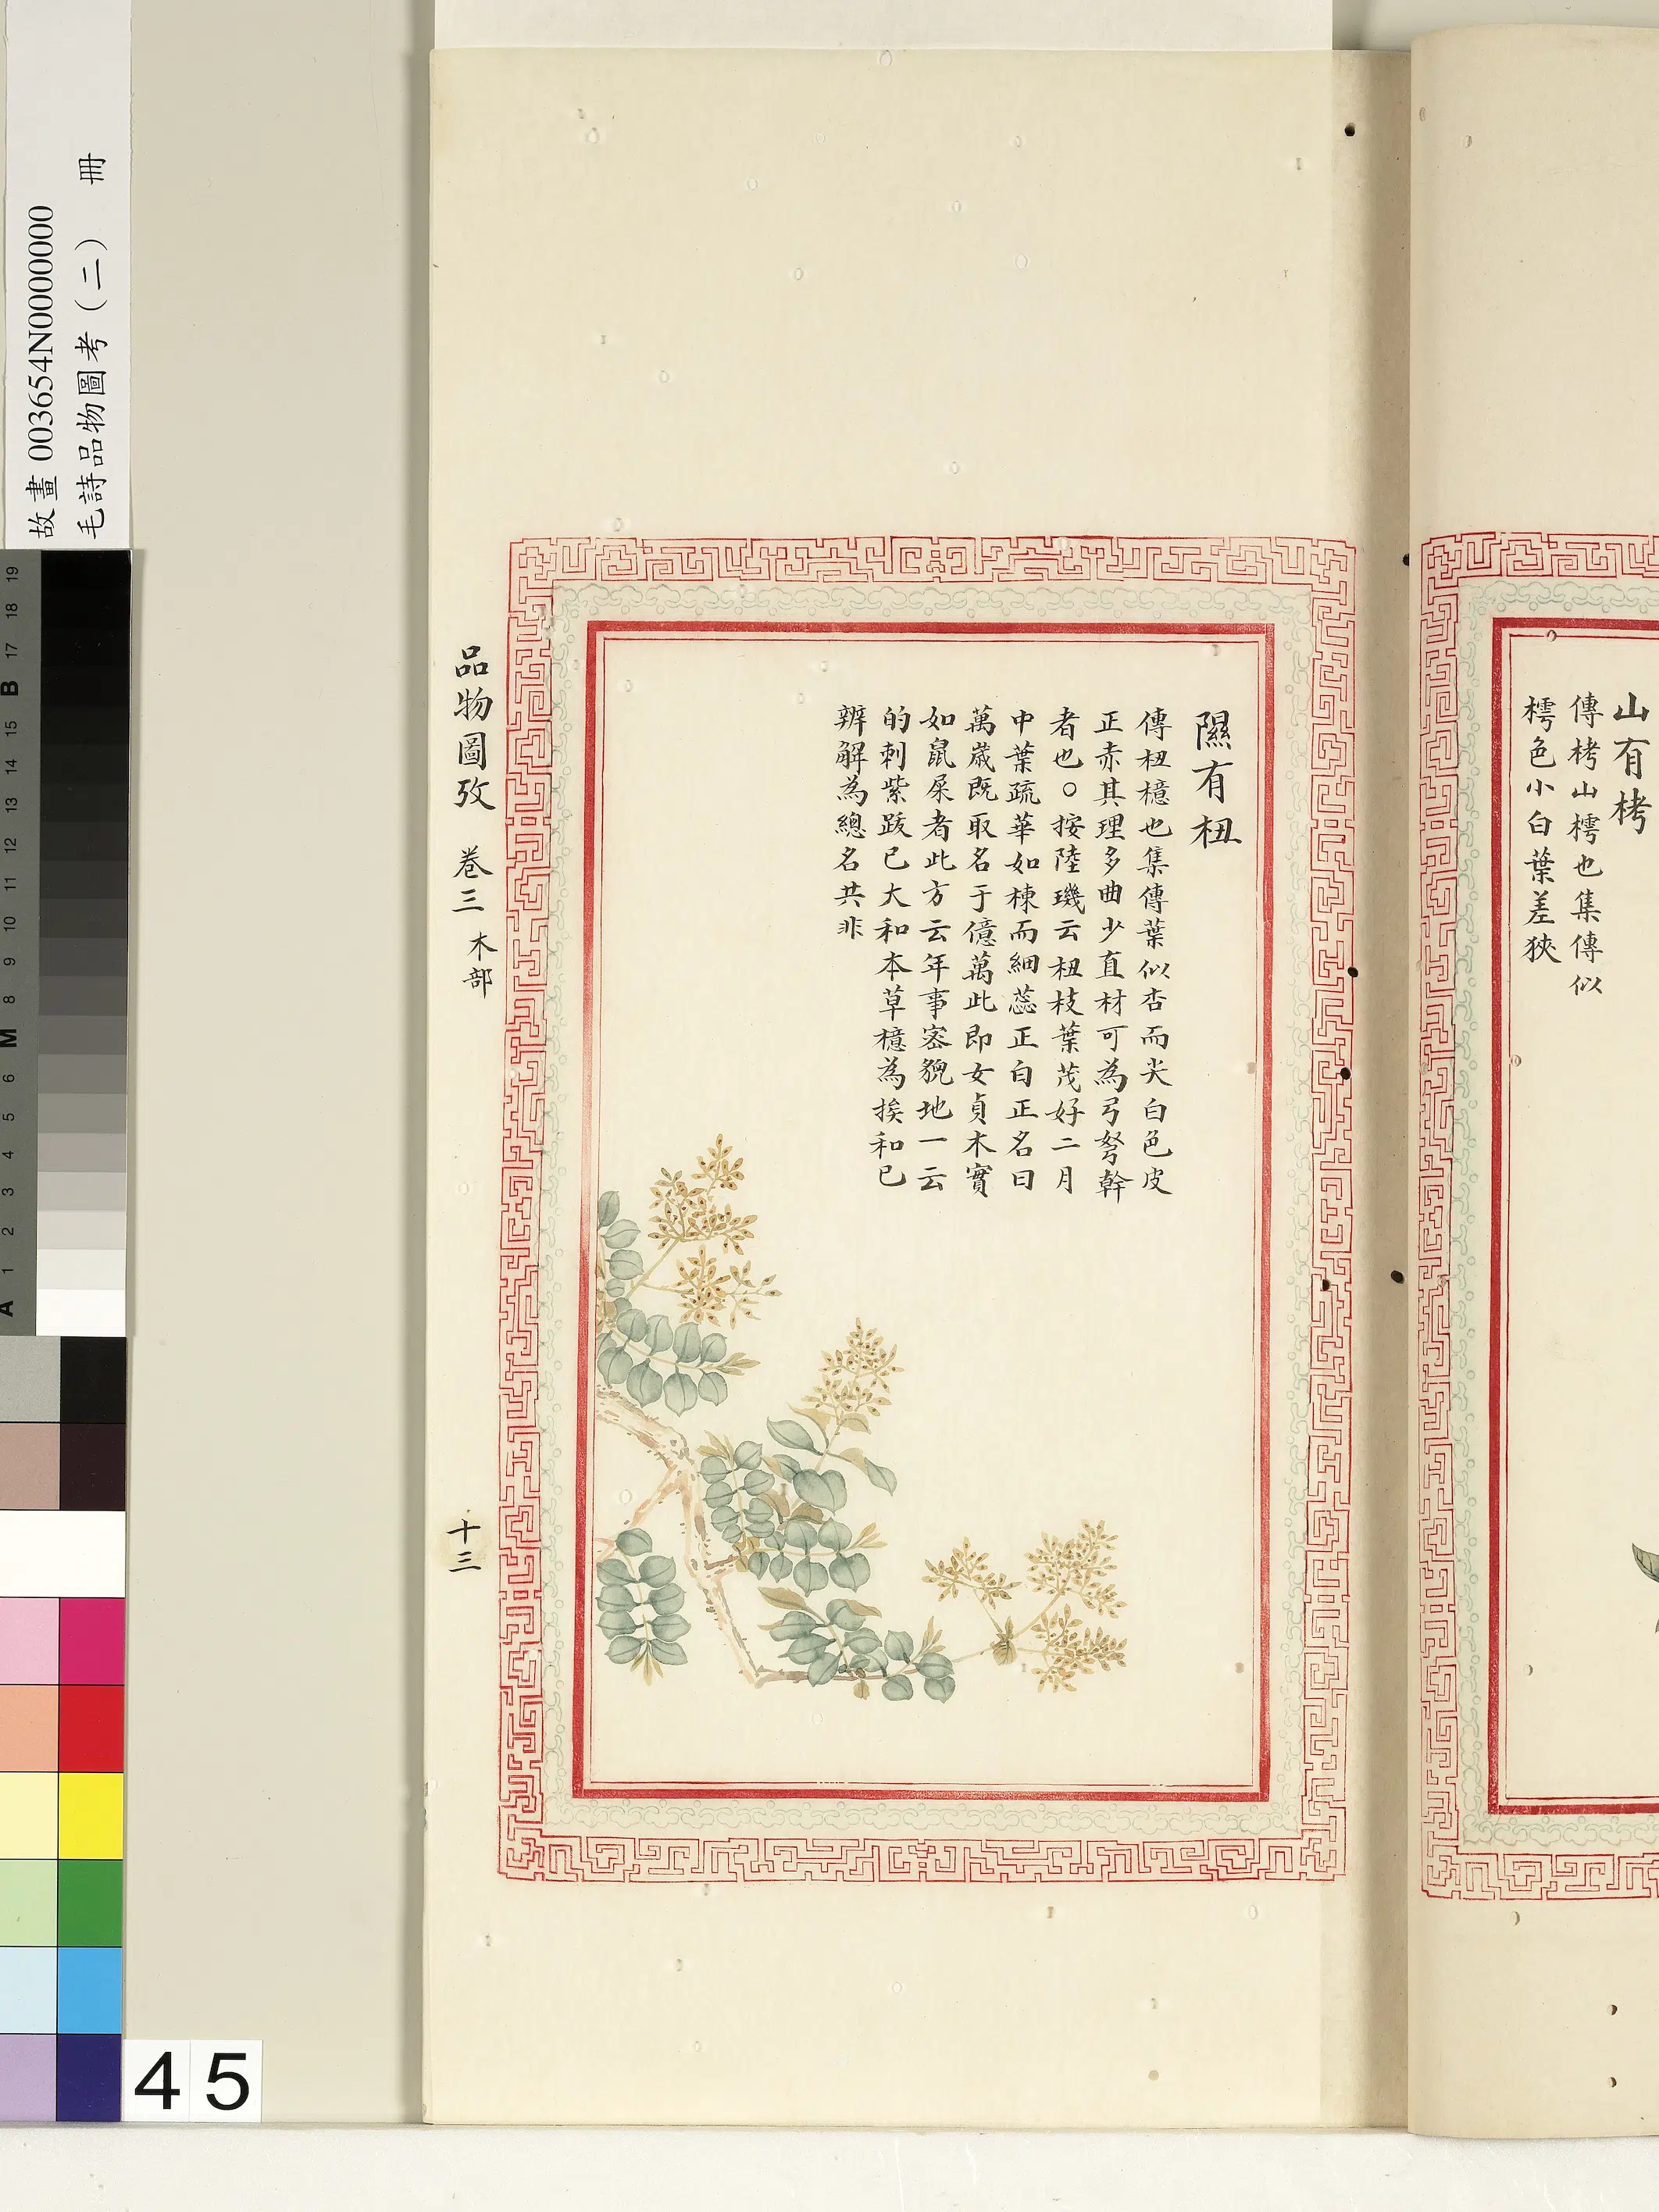 山有栲
傳栲山樗也集傳似
樗色小白葉差狹
隰有杻
傳杻檍也集傳葉似杏而尖白色皮
正赤其理多曲少直材可為弓弩幹
者也○按陸璣云杻枝葉茂好二月
中葉疏華如楝而細蕊正白正名曰
萬歲既取名于億萬此即女貞木實
如鼠屎者此方云年事密貌地一云
的刺紫跋已大和本草檍為挨和已
辨解為總名共非
品物圖攷 卷三 木部
十三
故畫 003654N000000000
毛詩品物圖考(二) 冊
A 1 2 3 4 5 6 M 8 9 10 11 12 13 14 15 B 17 18 19
45